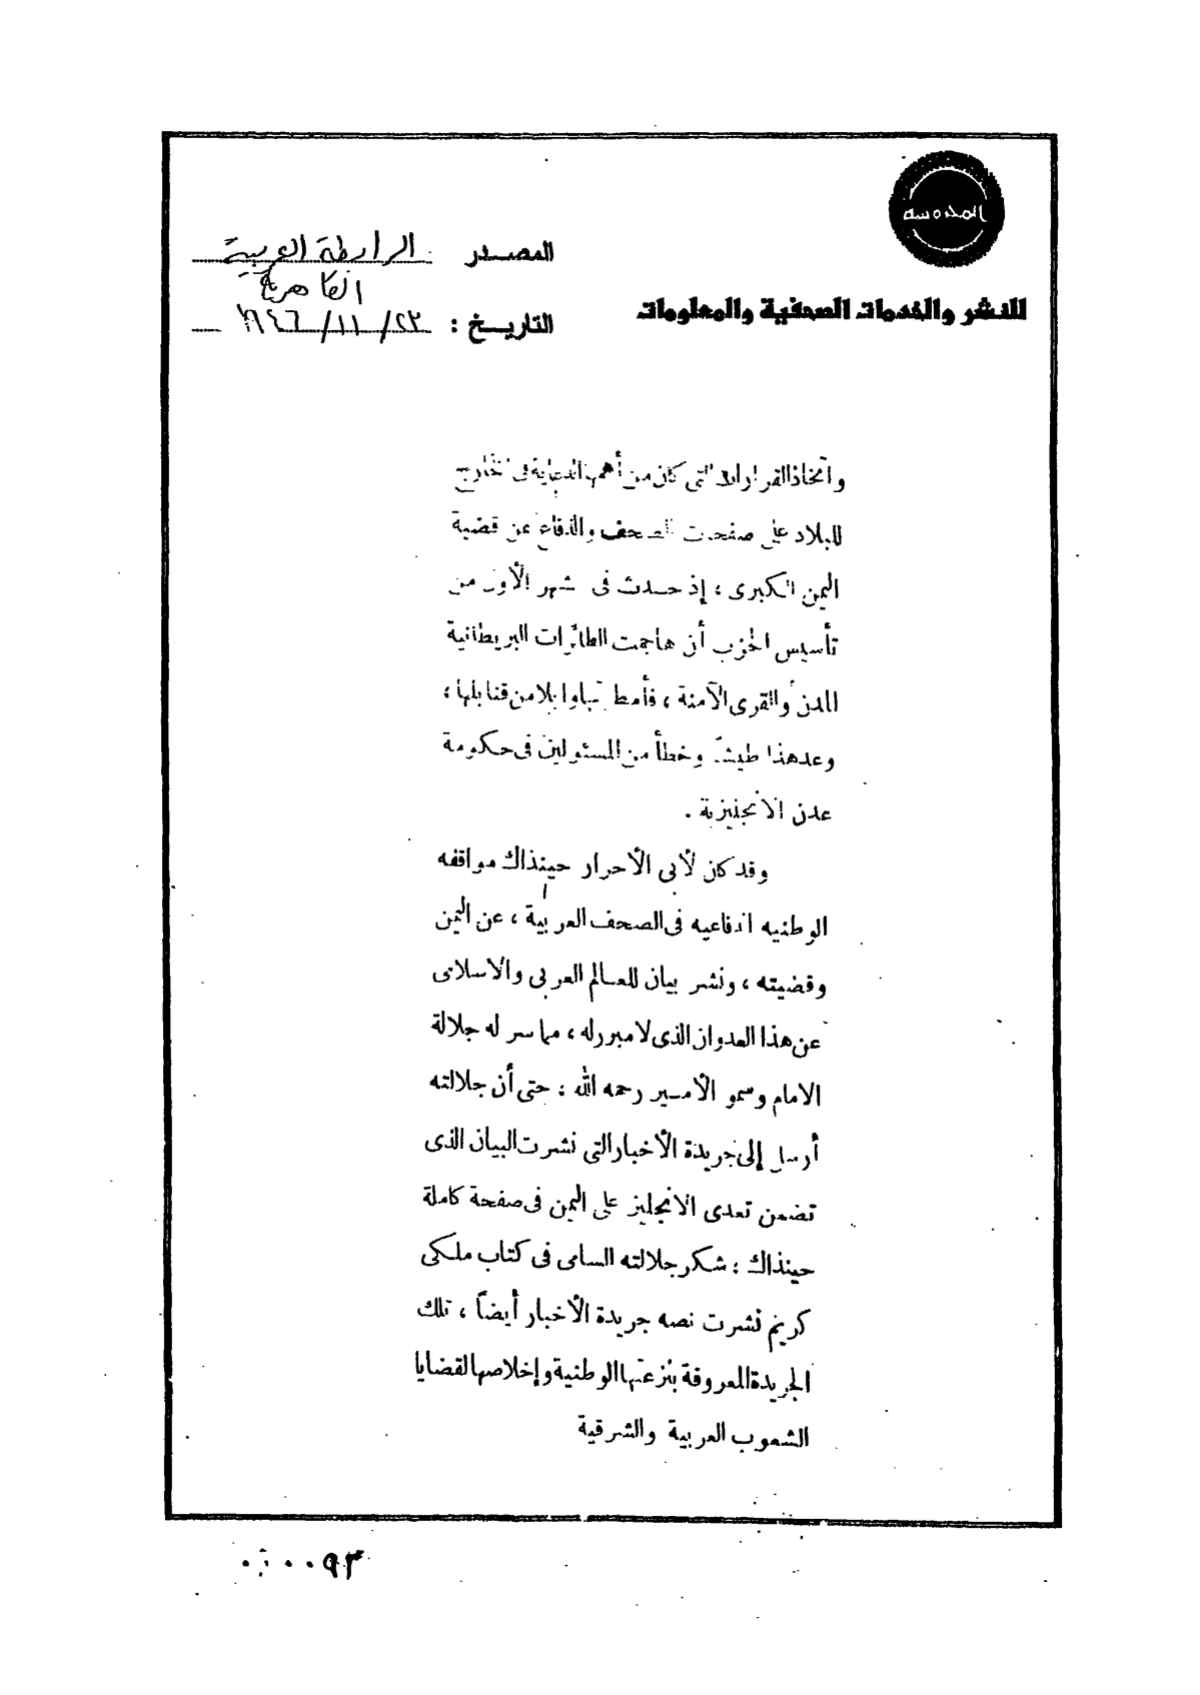 المحروسة
للنشر والخدمات الصحفية والمعلومات
المصدر الرابطة العربية
القاهرة
التاريخ : ٢٣/١١/١٩٤٦
واتخاذ القرارات التى كان من أهمها الدعاية فى خارج
البلاد على صفحات الصحف والدفاع عن قضية
اليمن الكبرى ، إذ حدث فى شهر الأول من
تأسيس الحزب أن هاجمت الطائرات البريطانية
المدن والقرى الآمنة ، فأمطرتها وابلا من قنابلها ،
وعد هذا طيشا وخطأ من المسئولين فى حكومة
عدن الانجليزية .
وقد كان لأبى الأحرار حينذاك مواقفه
الوطنيه الدفاعيه فى الصحف العربية ، عن اليمن
وقضيته ، ونشر بيان للعالم العربى والاسلامى
عن هذا العدوان الذى لا مبرر له ، مما سر له جلالة
الامام وسمو الأمير رحمه الله ؛ حتى أن جلالته
أرسل إلى جريدة الأخبار التى نشرت البيان الذى
تضمن تعدى الانجليز على اليمن فى صفحة كاملة
حينذاك ؛ شكر جلالته السامى فى كتاب ملكى
كريم نشرت نصه جريدة الأخبار أيضاً ، تلك
الجريدة المعروفة بنزعتها الوطنية وإخلاصها لقضايا
الشعوب العربية والشرقية